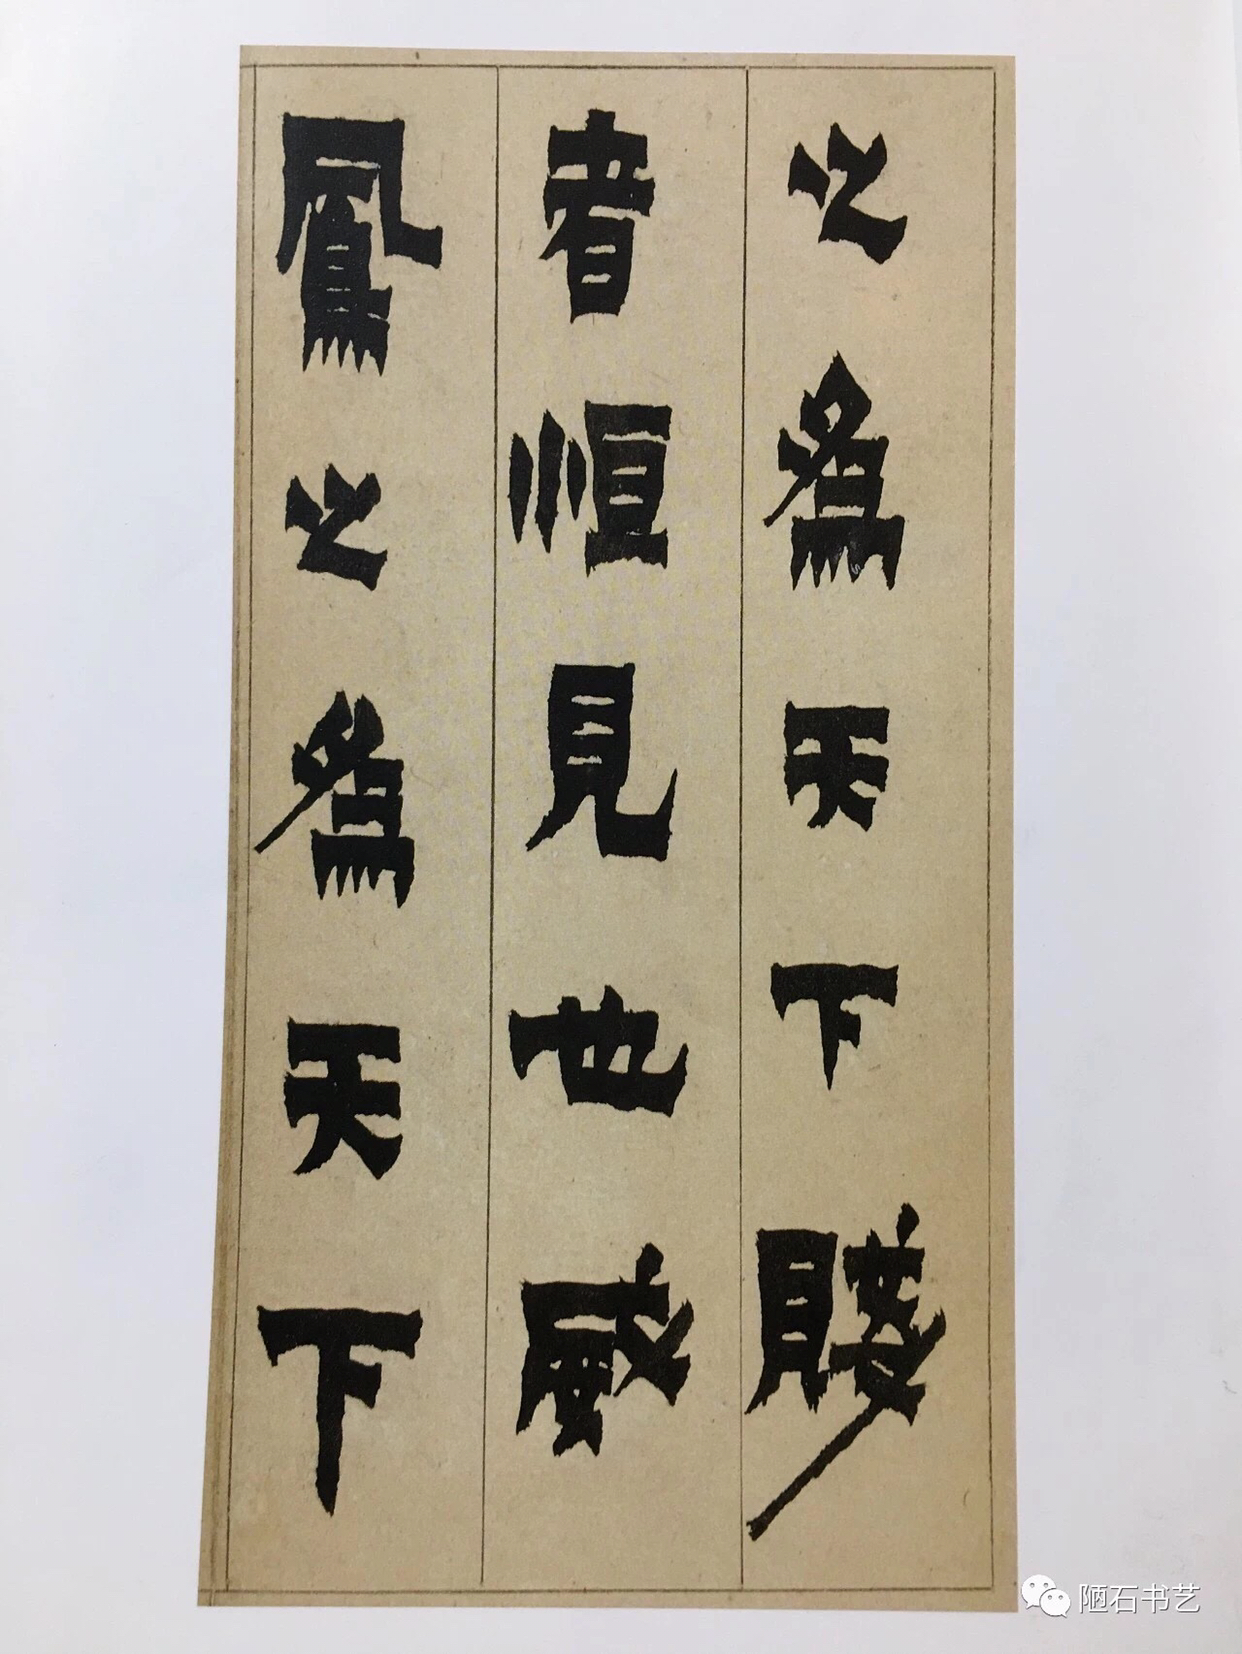 之為天下賤
者恒見也威
鳳之為天下
陋石书艺